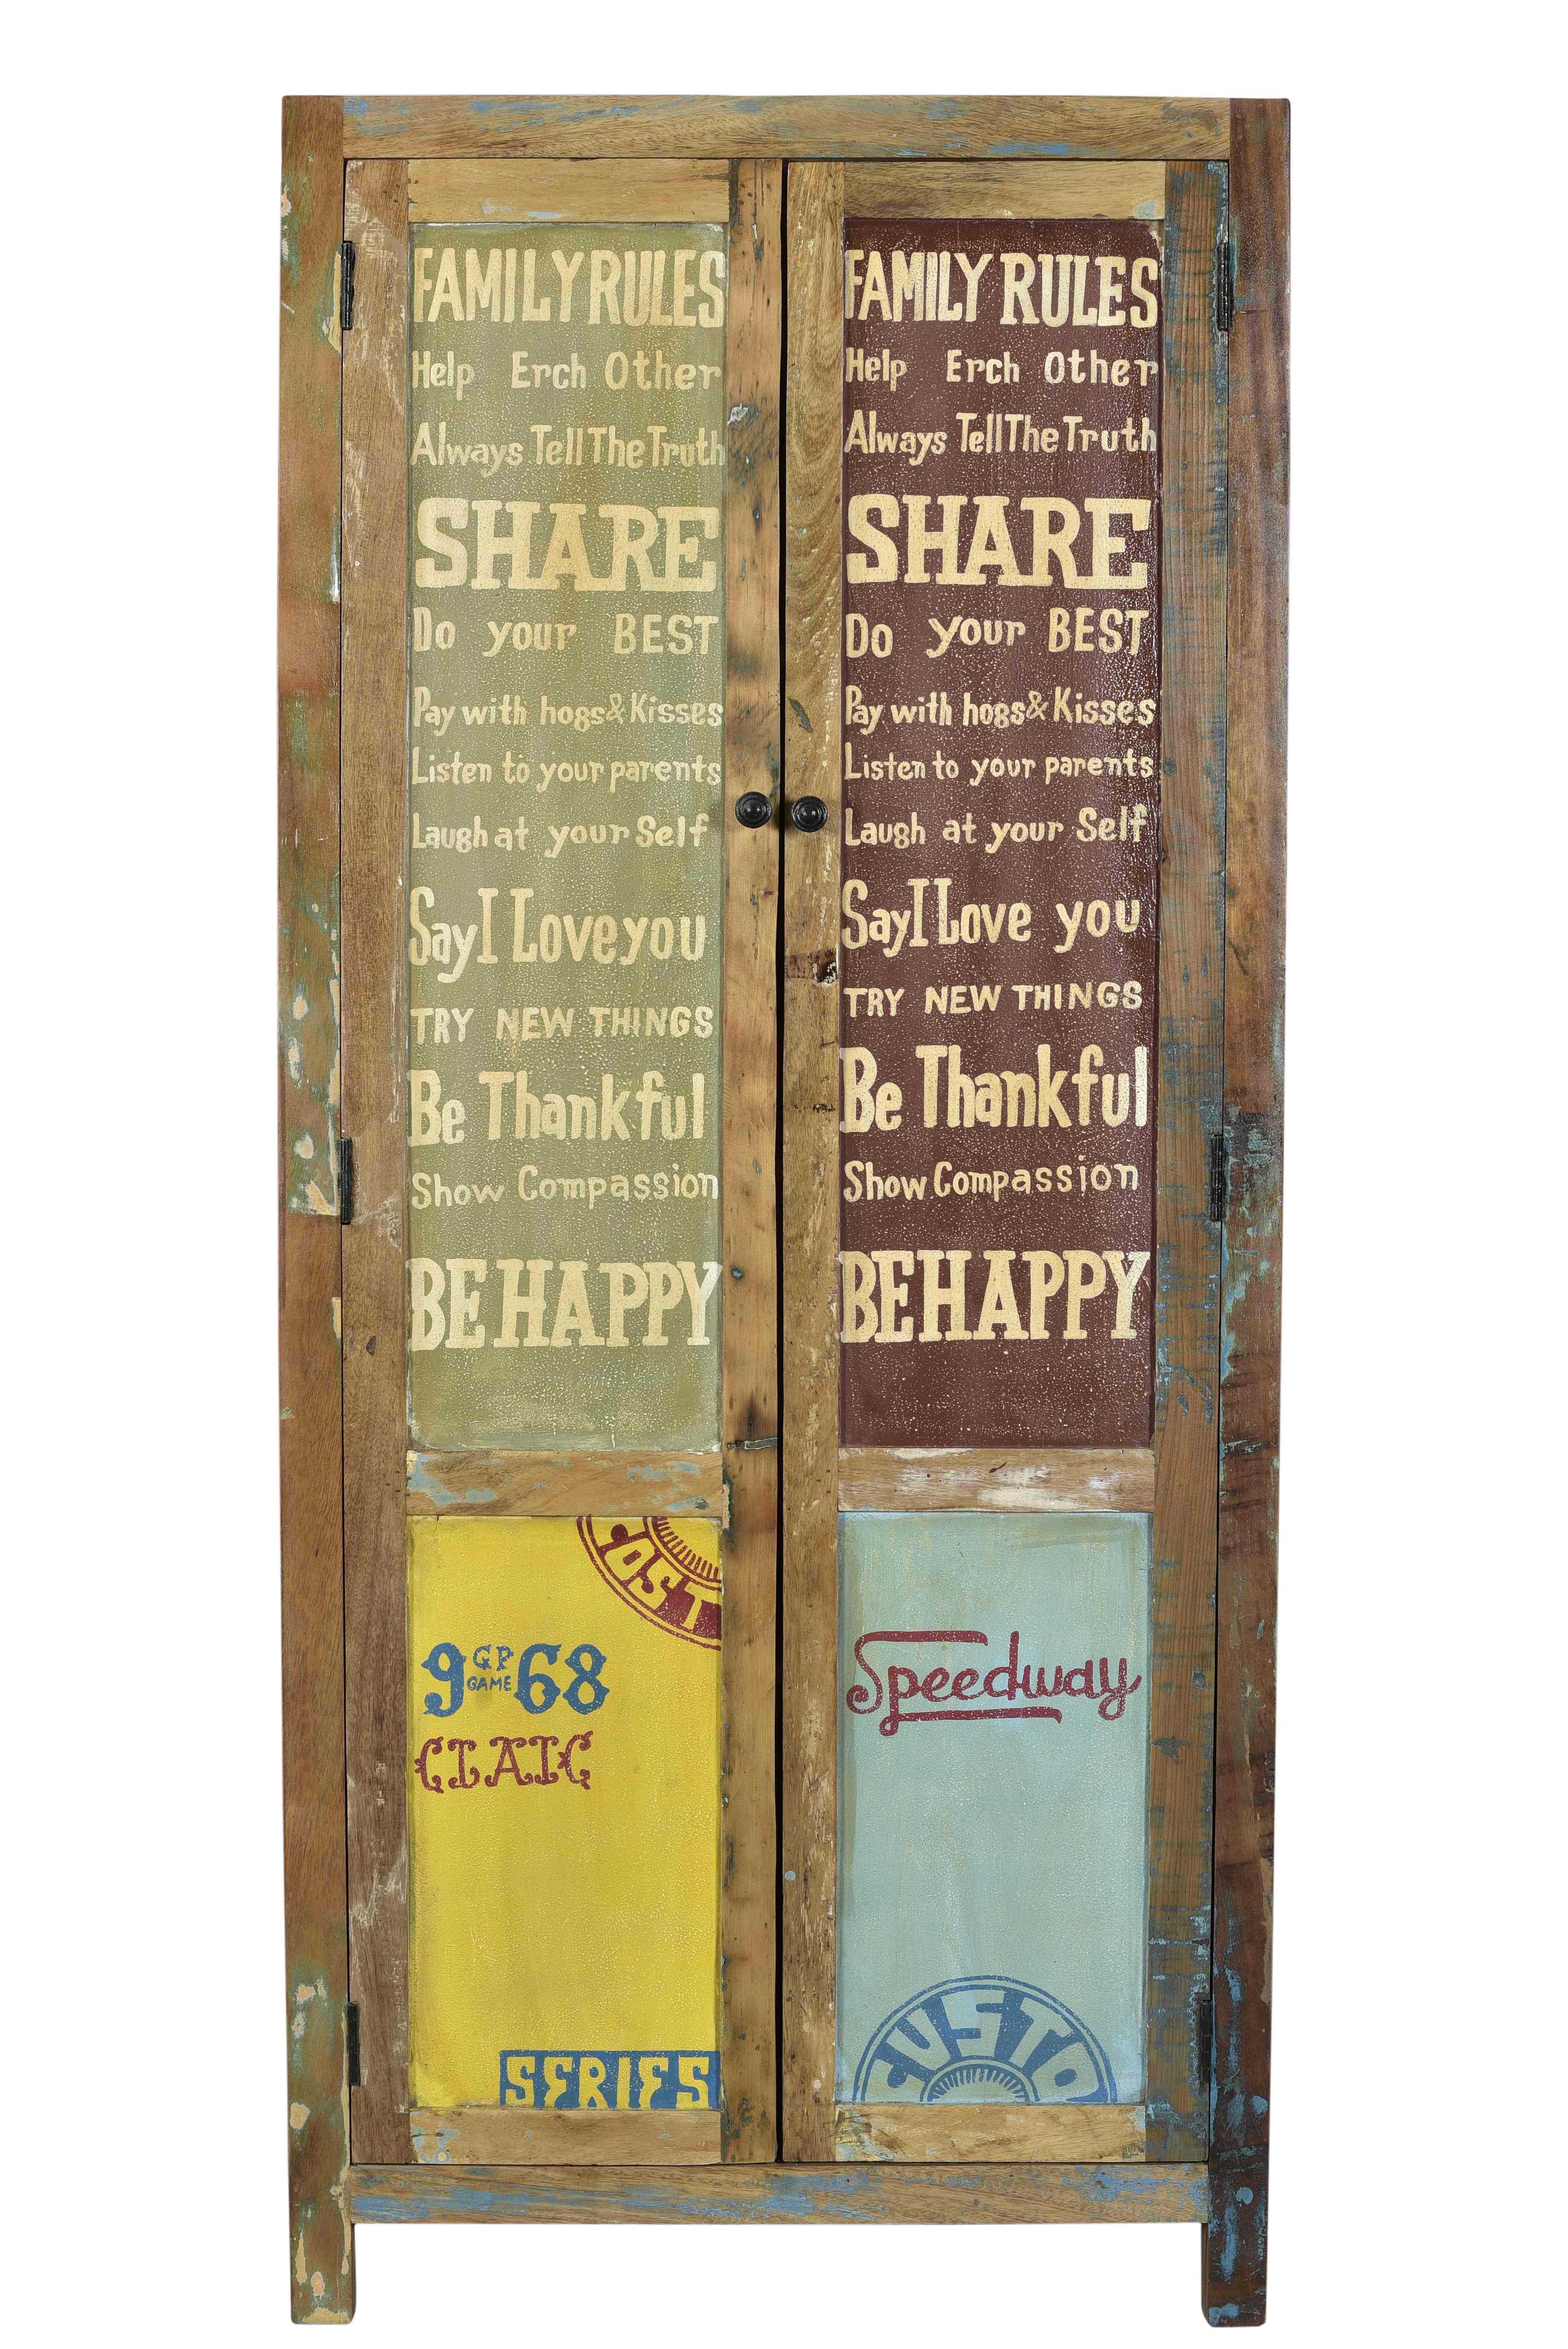 FAMILY RULES
Help Erch Other
Always Tell The Truth
SHARE
Do your BEST
Pay with hogs & Kisses
Listen to your parents
Laugh at your Self
Say I Love you
TRY NEW THINGS
Be Thankful
Show Compassion
BE HAPPY
FAMILY RULES
Help Erch Other
Always Tell The Truth
SHARE
Do your BEST
Pay with hogs & Kisses
Listen to your parents
Laugh at your Self
Say I Love you
TRY NEW THINGS
Be Thankful
Show Compassion
BE HAPPY
9 GP GAME 68
CIAIC
SERIES
Speedway
CUSTO